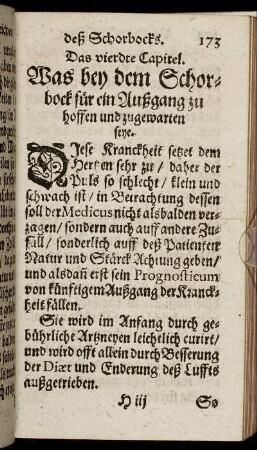 deß Schorbocks. 173
Das vierdre Capitel.
Was bey dem Schor-
bock für ein Außgang zu
hoffen und zugewarten
seye.
DIese Kranckheit setzet dem
Hertzen sehr zu / daher der
Puls so schlecht / klein und
schwach ist / in Betrachtung dessen
soll der Medicus nicht alsbalden ver-
zagen / sondern auch auff andere Zu-
fäll / sonderlich auff deß Patienten
Natur und Stärck Achtung geben /
und alsdañ erst sein Prognosticum
von künftigem Außgang der Kranck-
heit fällen.
Sie wird im Anfang durch ge-
bührliche Artzneyen leichtlich curirt /
und wird offt allein durch Besserung
der Diæt und Enderung deß Luffts
außgetrieben.
H iij So